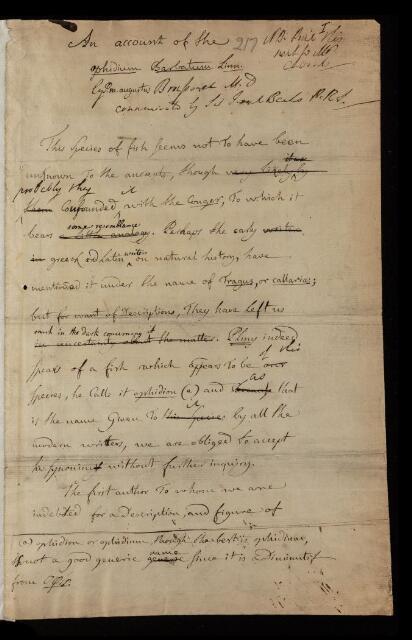 An account of the 217
ophidium Barbatum Linn.
By Mr. augustus Broussonet M.D
communicated by Sr. Joseph Banks P.R.S.
This Species of fish seems not to have been
unknown to the ancients, though very likely
probably they it
them confounded with the Conger, to which it
some resemblance
bears a little analogy. Perhaps the early writers
writers
in greek or Latin on natural history, have
mentioned it under the name of Tragus, or callarias;
but for want of descriptions, They have left us
much in the dark concerning it
in uncertainty about the matter. Pliny indeed
of this
speaks of a fish which appears to be our
as
species, he calls it ophidion (a) and that
it
is the name Given To this species by all the
modern writers, we are obliged to accept
he synonimy without further inquiry.
The first author To whom we are
indebted for a Description, and figure of
(a) ophidion or ophidium, though the best is ophidium,
not a good generic name since it is a diminutif
from